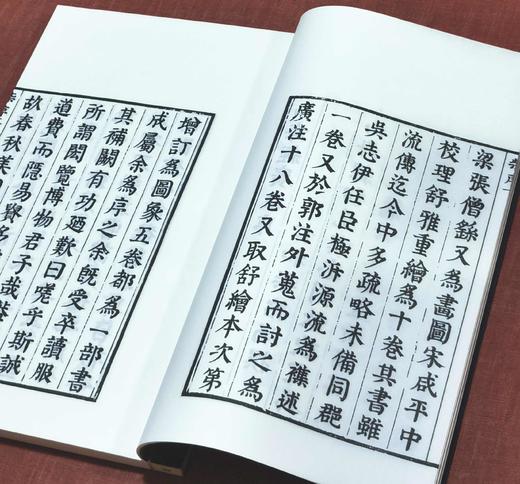 梁張僧繇又為畫圖宋咸平中
校理舒雅重繪為十卷其書雖
流傳迄今中多疏略未備同郡
吳志伊任臣極泝源流為襍述
一卷又於郭注外蒐而討之為
廣注十八卷又取舒繪本次第
增訂為圖象五卷都為一部書
成屬余為序之余旣受卒讀服
其補闕有功廼歎曰嗟乎斯誠
所謂閎覽博物君子哉
道費而隱易賾
故春秋